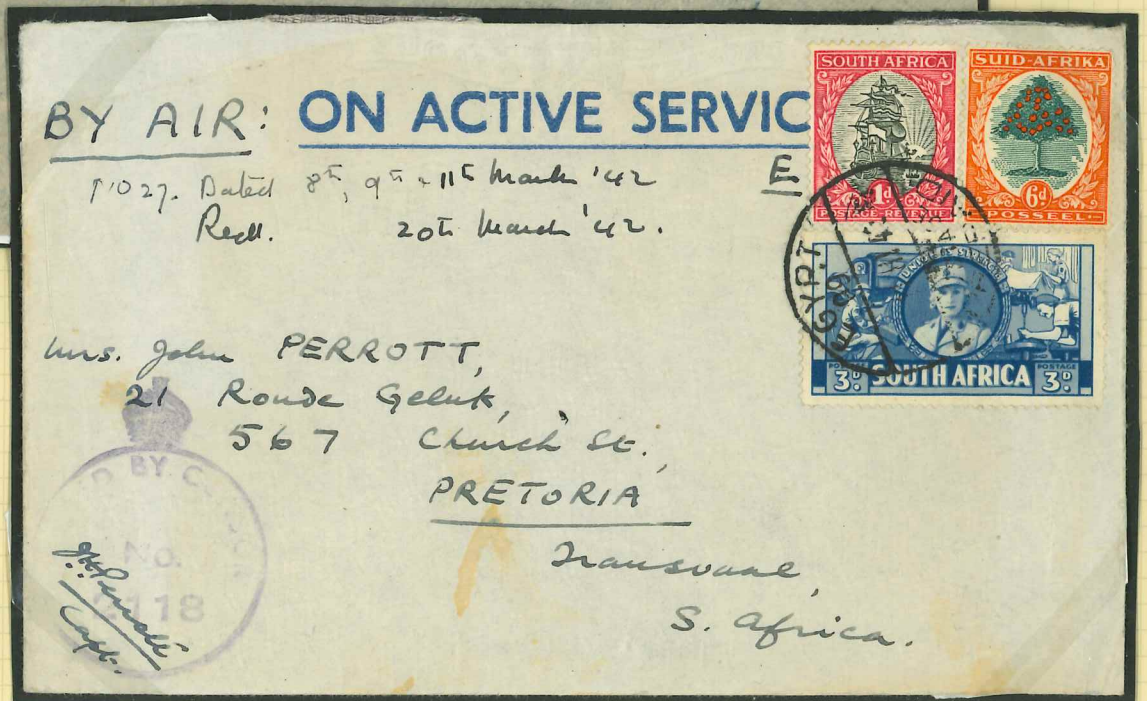 BY AIR: ON ACTIVE SERVIC
E
Dated 8th, 9th + 11th March '42
Recd. 20th March '42.
SOUTH AFRICA
1d
POSTAGE-REVENUE
SUID-AFRIKA
6d
POSSEEL
EGYPT 69
POSTAGE POSTAGE
3D SOUTH AFRICA 3D
Mrs. John PERROTT,
21 Ronde Geluk,
567 Church St.,
PRETORIA
Transvaal,
S. Africa.
BY
No.
118
Capt.